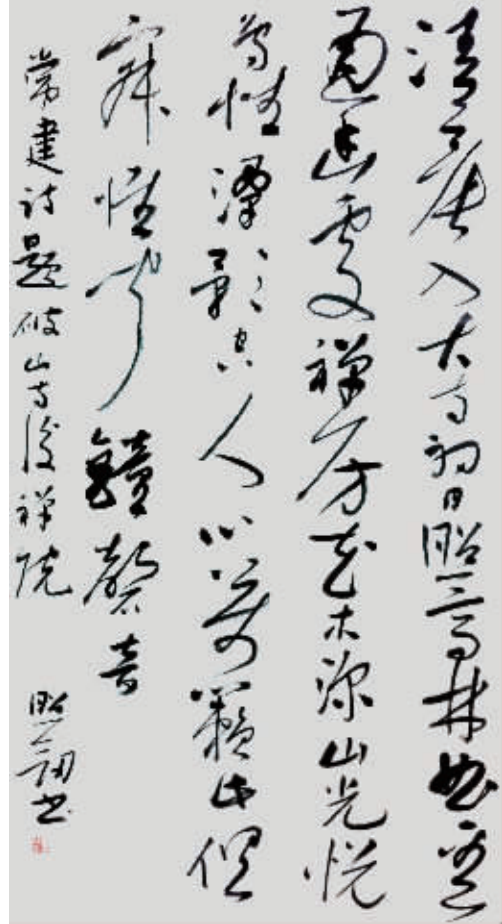 清晨入大寺初日照高林曲徑
通幽處禅房花木深山光悦
鳥性潭影空人心萬籟此俱
寂惟聞鐘磬音
常建诗题破山寺後禅院
照 书